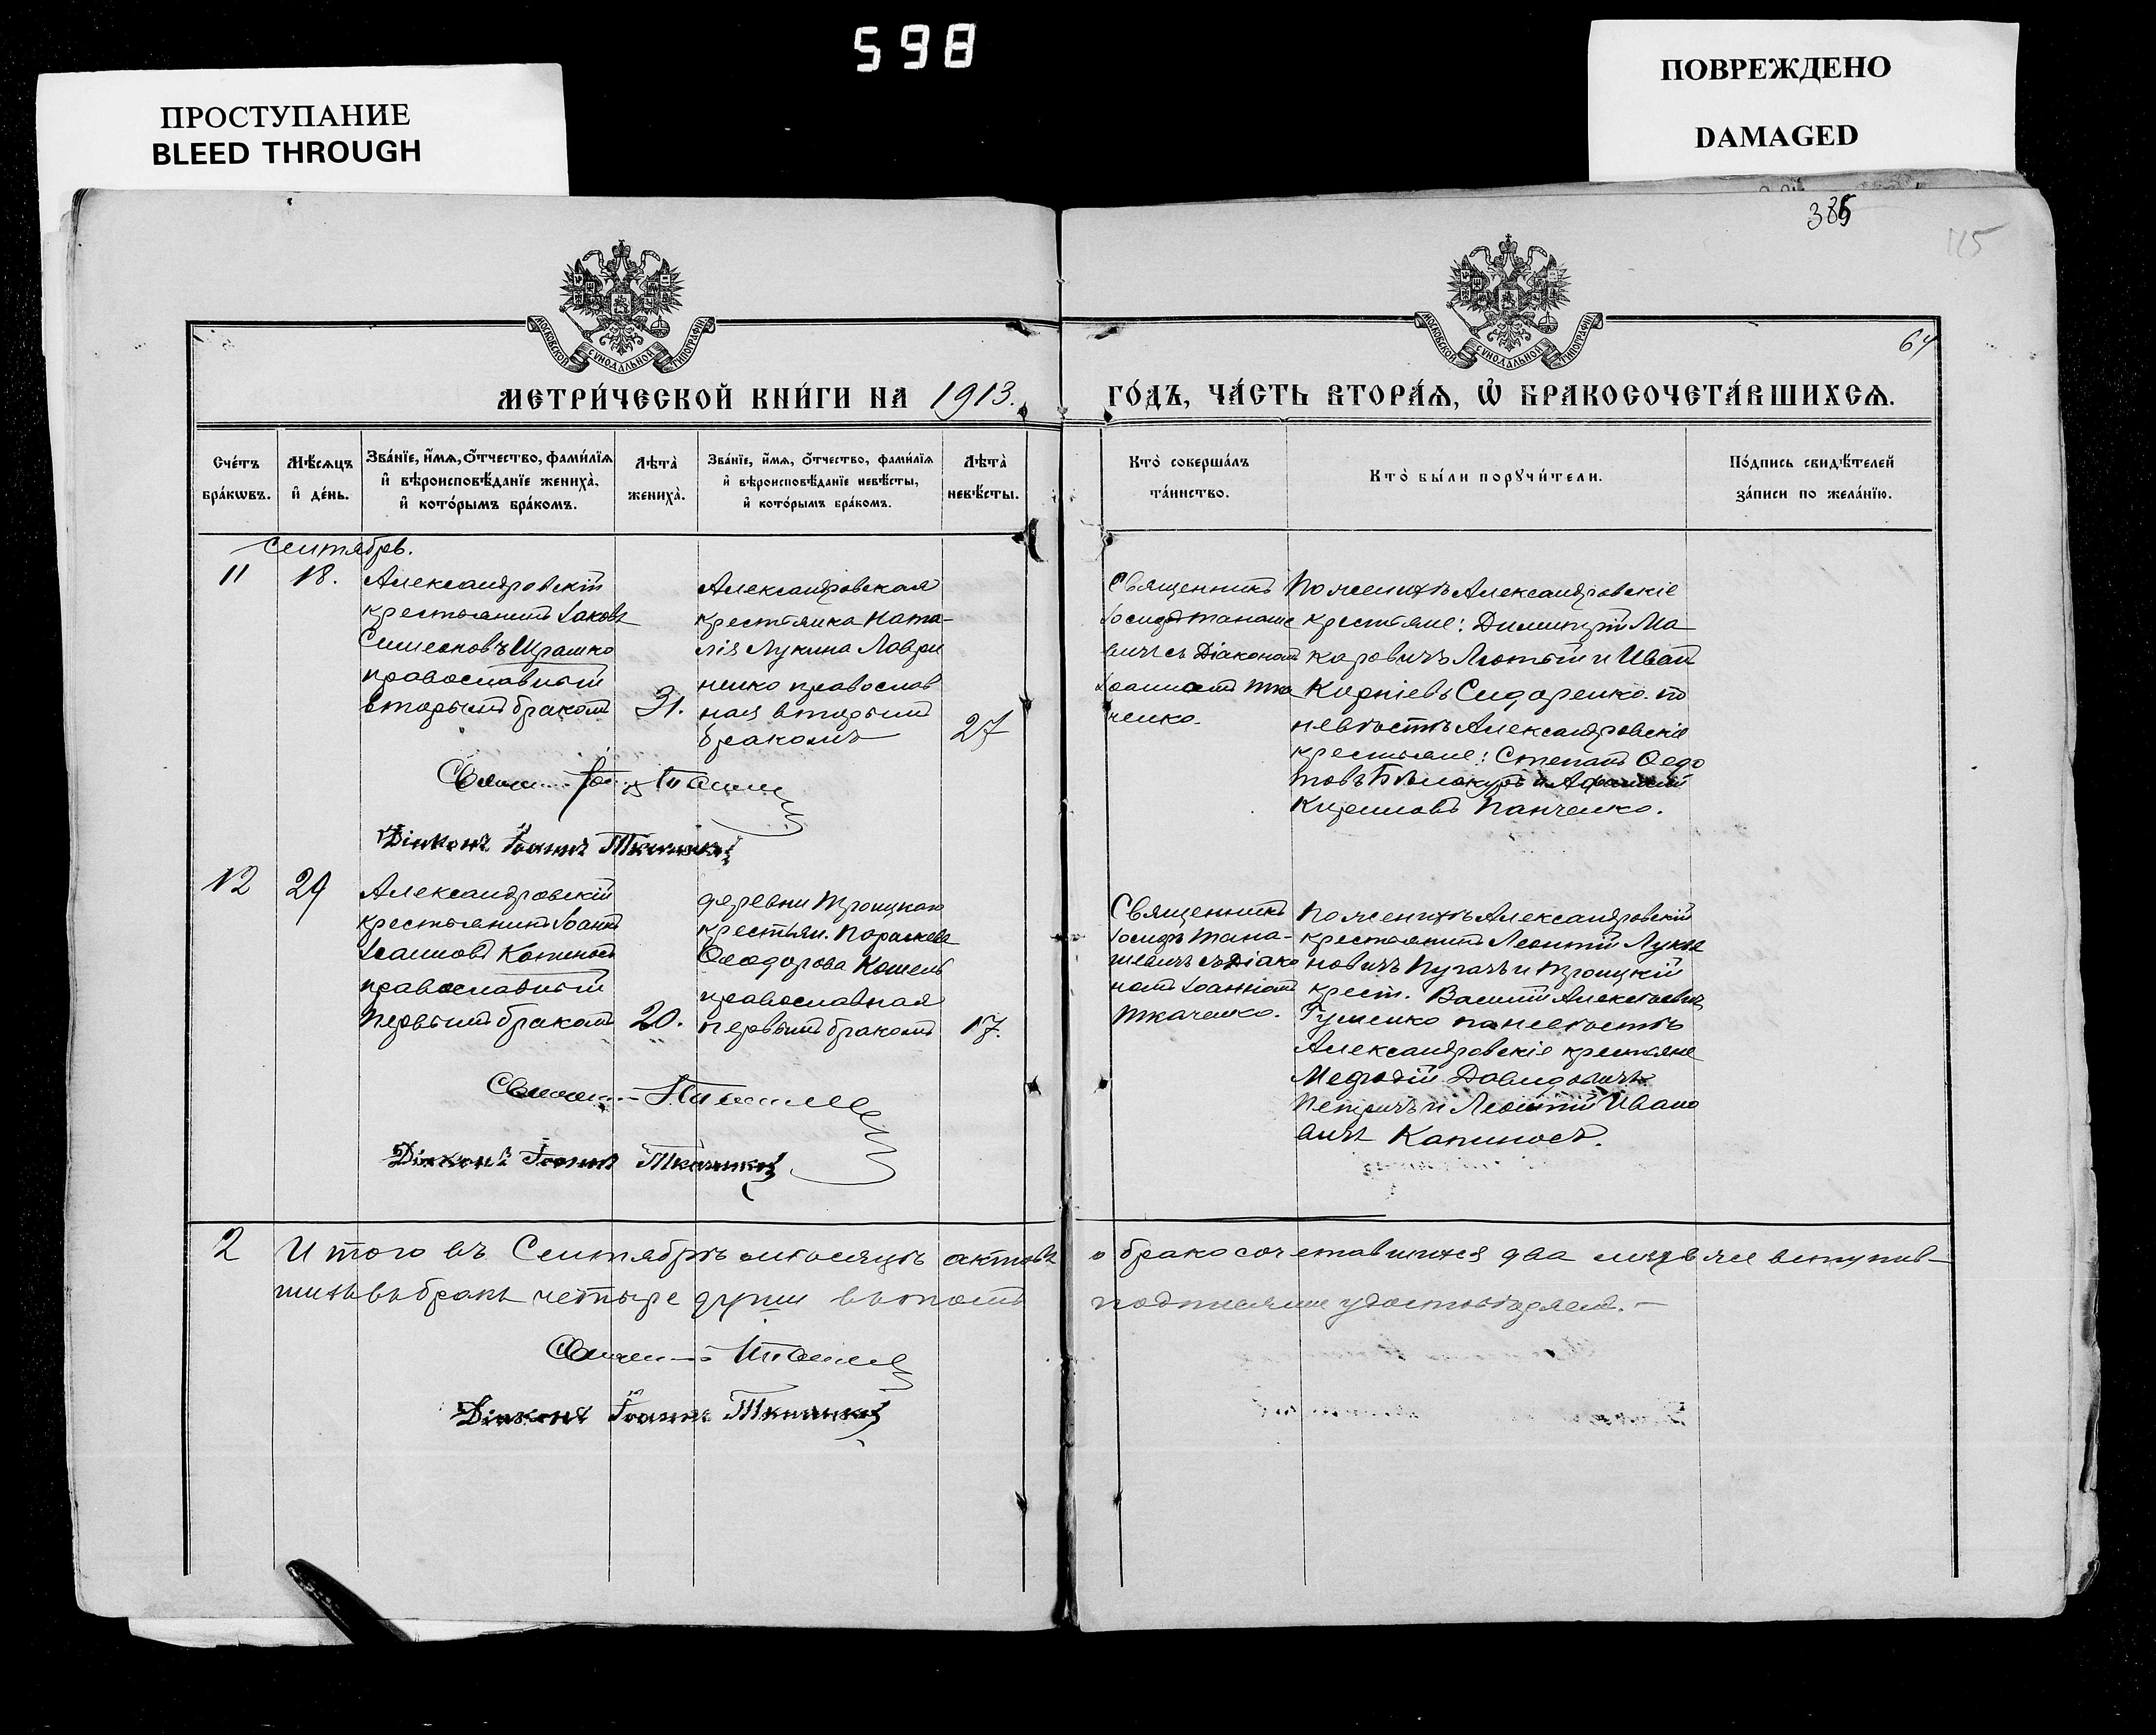 598
ПРОСТУПАНИЕ
BLEED THROUGH
ПОВРЕЖДЕНО
DAMAGED
115
64
МОСКОВСКОЙ СУНОДАЛЬНОЙ ТИПОГРАФІИ
МОСКОВСКОЙ СУНОДАЛЬНОЙ ТИПОГРАФІИ
МЕТРИ́ЧЕСКОЙ КНИ́ГИ НА 1913.
ГО́ДЪ, ЧА́СТЬ ВТОРА́Ѧ, Ѿ БРАКОСОЧЕТА́ВШИХСѦ.
Сче́тъ бра́кѡвъ.
Мѣ́сѧцъ и҆ де́нь.
Зва́нїе, и҆́мѧ, ѻ҆́тчество, фами́лїѧ
и҆ вѣроисповѣ́данїе жениха̀,
и҆ кото́рымъ бра́комъ.
Лѣта̀ жениха̀.
Зва́нїе, и҆́мѧ, ѻ҆́тчество, фами́лїѧ
и҆ вѣроисповѣ́данїе невѣ́сты,
и҆ кото́рымъ бра́комъ.
Лѣта̀ невѣ́сты.
Кто̀ соверша́лъ
та́инство.
Кто̀ бы́ли порꙋчи́тели.
По́дпись свидѣ́телей
за́писи по жела́нїю.
Сентябрь.
11
18.
Александровскій
крестьянинъ Іаковъ
Симеоновъ Ирашко
православный
вторымъ бракомъ
31.
Александровская
крестьянка Ната-
лія Лукина Лаври
ненко православ
ная вторымъ
бракомъ
27
Священникъ
Іосифъ Танаше
вичъ съ Діакономъ
Іоанномъ Тка
ченко.
По женихѣ Александровскіе
крестьяне: Димитрій Ма
каровичъ Лютый и Иванъ
Корніевъ Сидоренко. по
невѣстѣ Александровскіе
крестьяне: Степанъ Ѳедо
товъ Бѣлокуръ и
Кирилловъ Панченко.
Діаконъ Іоаннъ Ткаченко
12
29
Александровскій
крестьянинъ Іоаннъ
Іоанновъ Капиносъ
православный
первымъ бракомъ
20.
деревни Троицкаго
крестьян. Параскева
Ѳеодорова Кошель
православная
первымъ бракомъ
17.
Священникъ
Іосифъ Тана-
шевичъ съ Діако
номъ Іоанномъ
Ткаченко.
По женихѣ Александровскій
крестьянинъ Леонтій Лукья
новичъ Пугачъ и Троицкій
крест. Василій Алексѣевичъ
Гуменко по невѣстѣ
Александровскіе крестьяне
Меѳодій Давидовичъ
Петричъ и Леонтій Ивано
вичъ Капиносъ.
Діаконъ Іоаннъ Ткаченко
2
Итого въ Сентябрѣ мѣсяцѣ актовъ о бракосочетавшихся два лицъ же вступив-
шихъ въ бракъ четыре души въ томъ подписями удостовѣряемъ.
Діаконъ Іоаннъ Ткаченко